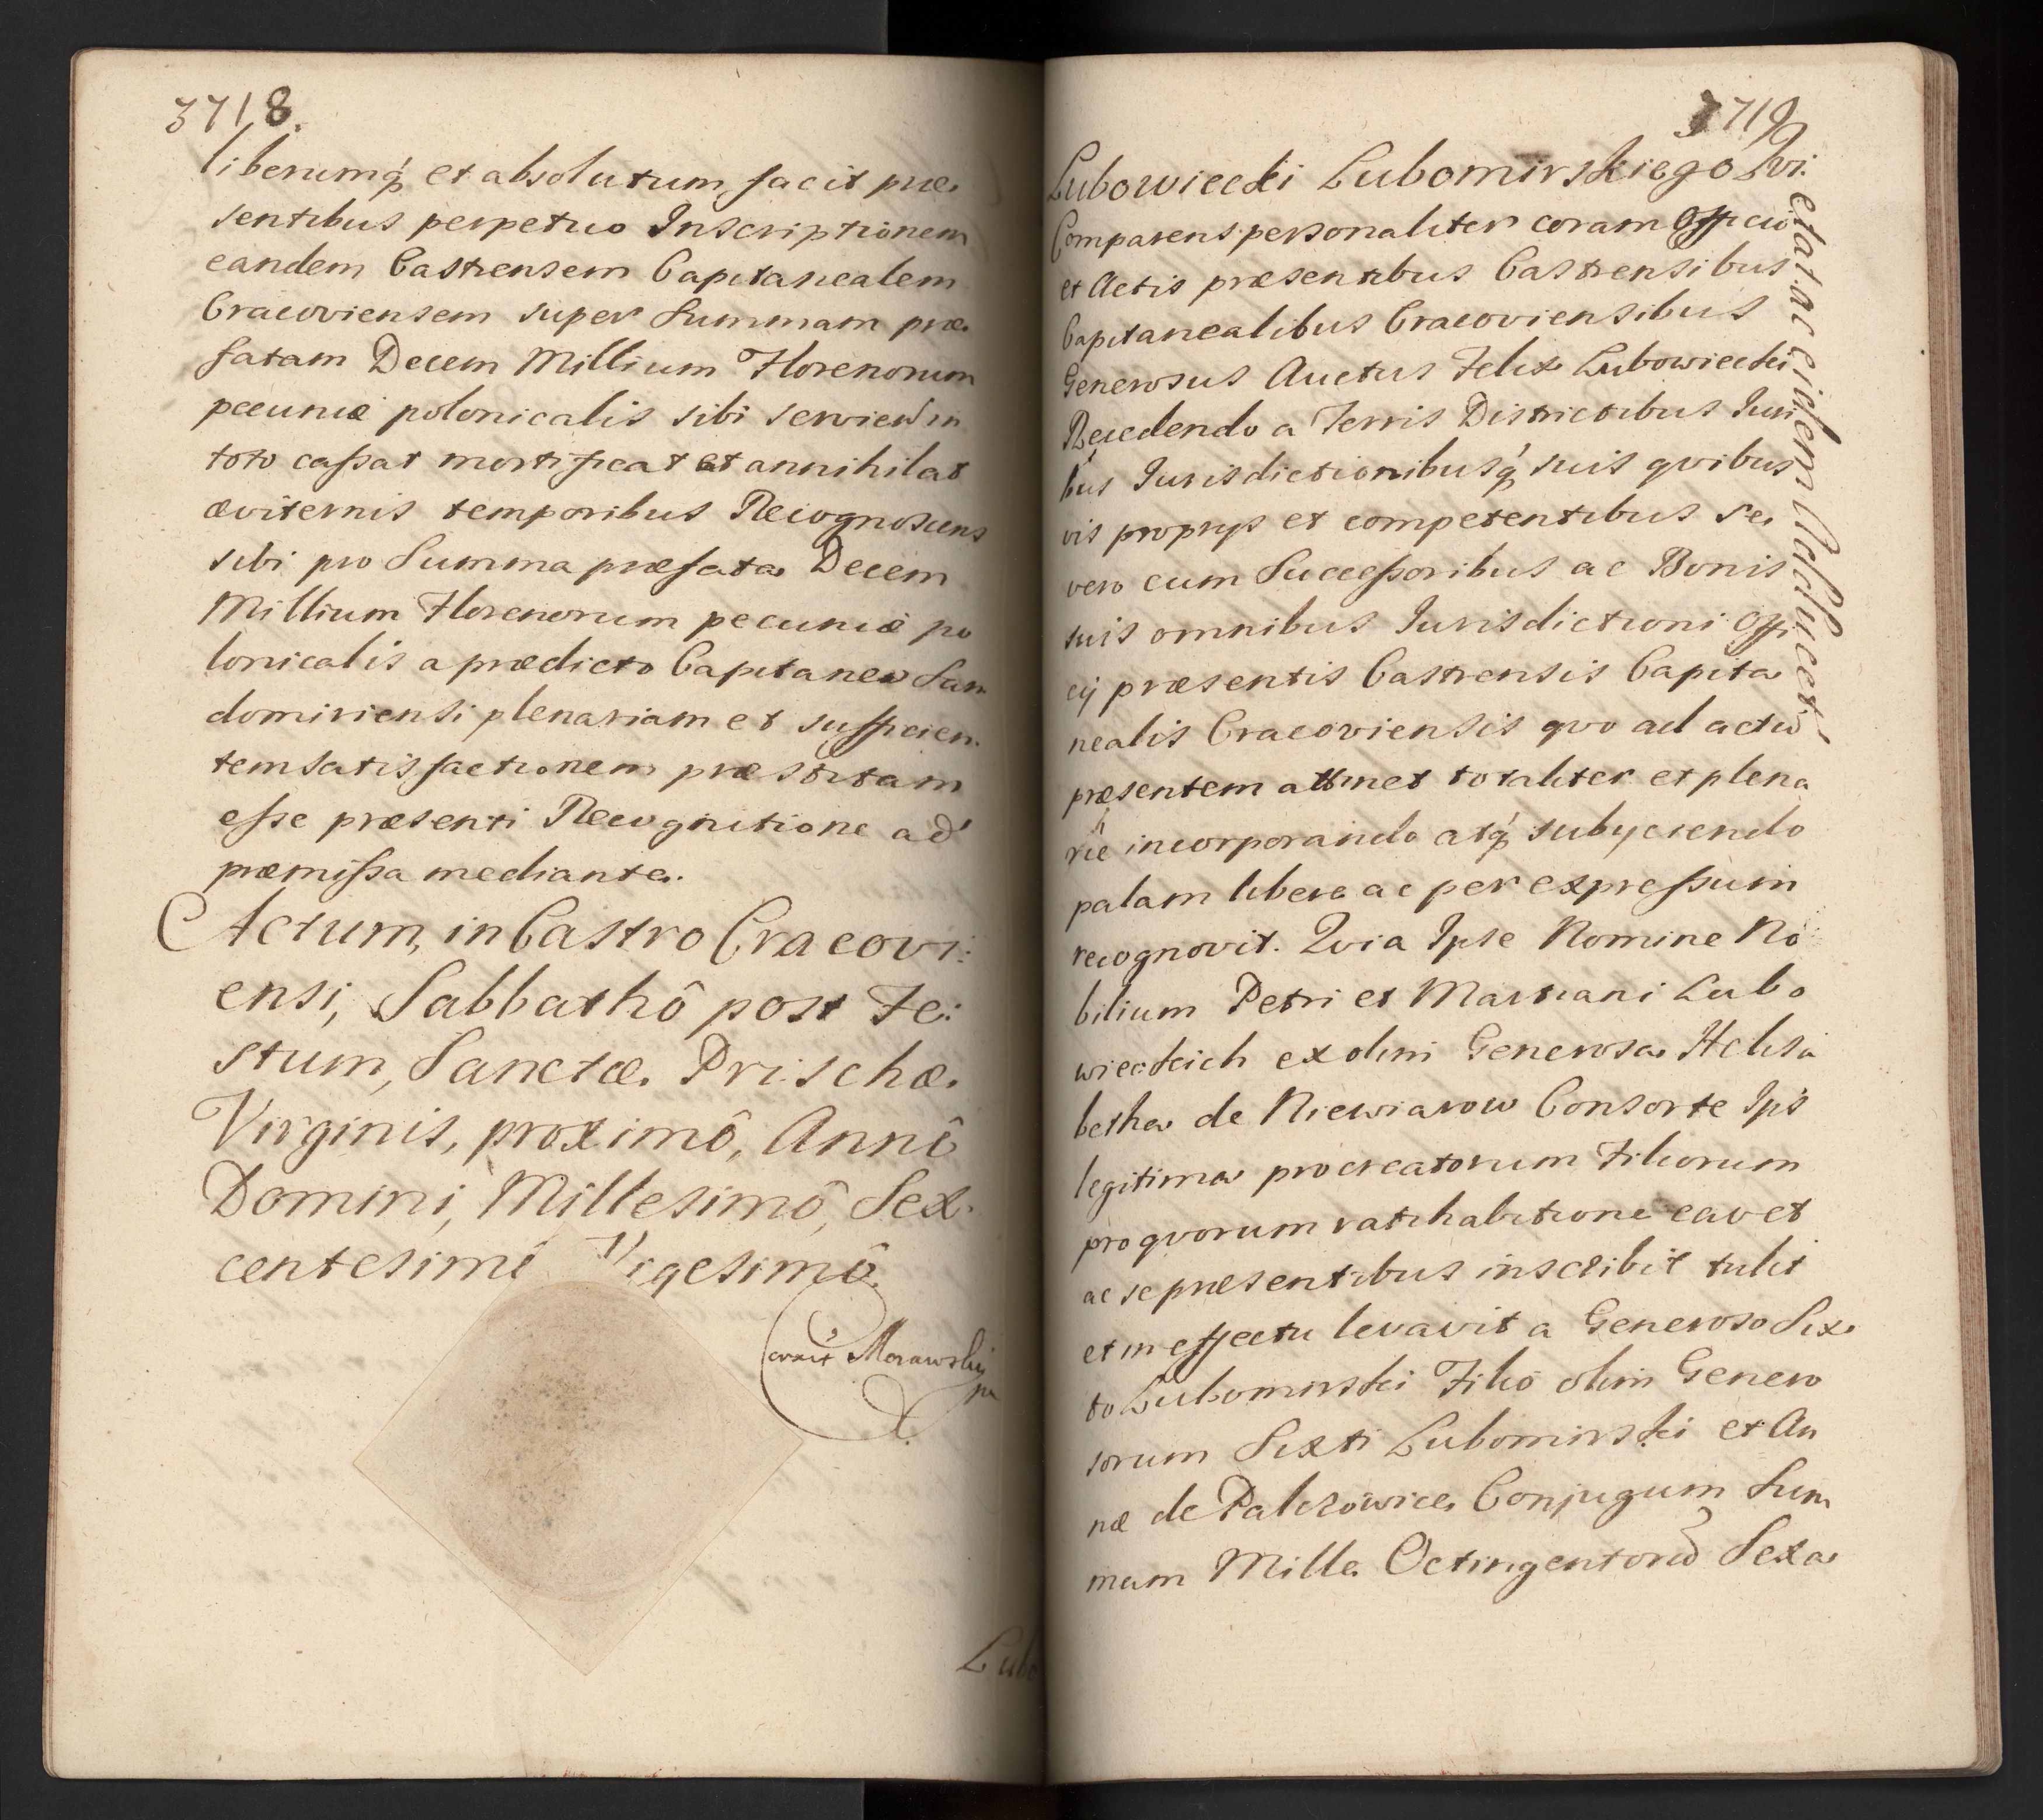 3718.
liberumq́ et absolutum facit præ
sentibus perpetuo Inscriptionem
eandem Castrensem Capitanealem
Cracoviensem super Summam præ
fatam Decem Millium Florenorum
pecuniæ polonicalis sibi servien in
toto cassat mortificat et annihilat
æviternis temporibus Recognoscens
sibi pro Summa præfata Decem
Millium Florenorum pecuniæ po
lonicalis a prædicto Capitaneo San
domiriensi plenariam et sufficien.
tem satisfactionem præstitam
esse præsenti Recognitione ad
præmissa mediante.
Actum, in Castro Cracovi:
ensi, Sabbathô post Fe:
stum, Sanctæ Prischæ
Virginis, proximô, Annô
Domini, Millesimô, Sex.
centesimô Vigesimô.
Morawsky
Lubo
3719
Lubowiecki Lubomirskiego Qvi:
etat ac eidem Adhæret
Comparens personaliter coram Officio
et Actis præsentibus Castrensibus
Capitanealibus Cracoviensibus
Generosus Auctus Felix Lubowiecki
Recedendo a Terris Districtibus Juri
bus Jurisdictionibusq́ suis qvibus
vis propriis et competentibus se
vero cum Successoribus ac Bonis
suis omnibus Jurisdictioni Offi
cij præsentis Castrensis Capita
nealis Cracoviensis qvo ad actū
præsentem attinet totaliter et plena
rie incorporando atq́ subyciendo
palam libere ac per expressum
recognovit. Qvia Ipse Nomine No
bilium Petri et Martiani Lubo
wieckich ex olim Generosa Helisa
betha de Niewiarow Consorte Ips
legitima procreatorum Filiorum
pro qvorum ratihabitione cavet
ac se præsentibus inscribit tulit
et in effectu levavit a Generoso Six
to Lubomirski Filio olim Genero
sorum Sixti Lubomirski et An
næ de Palczowice Conjugum Sum
mam Mille Octingentorū Sexa